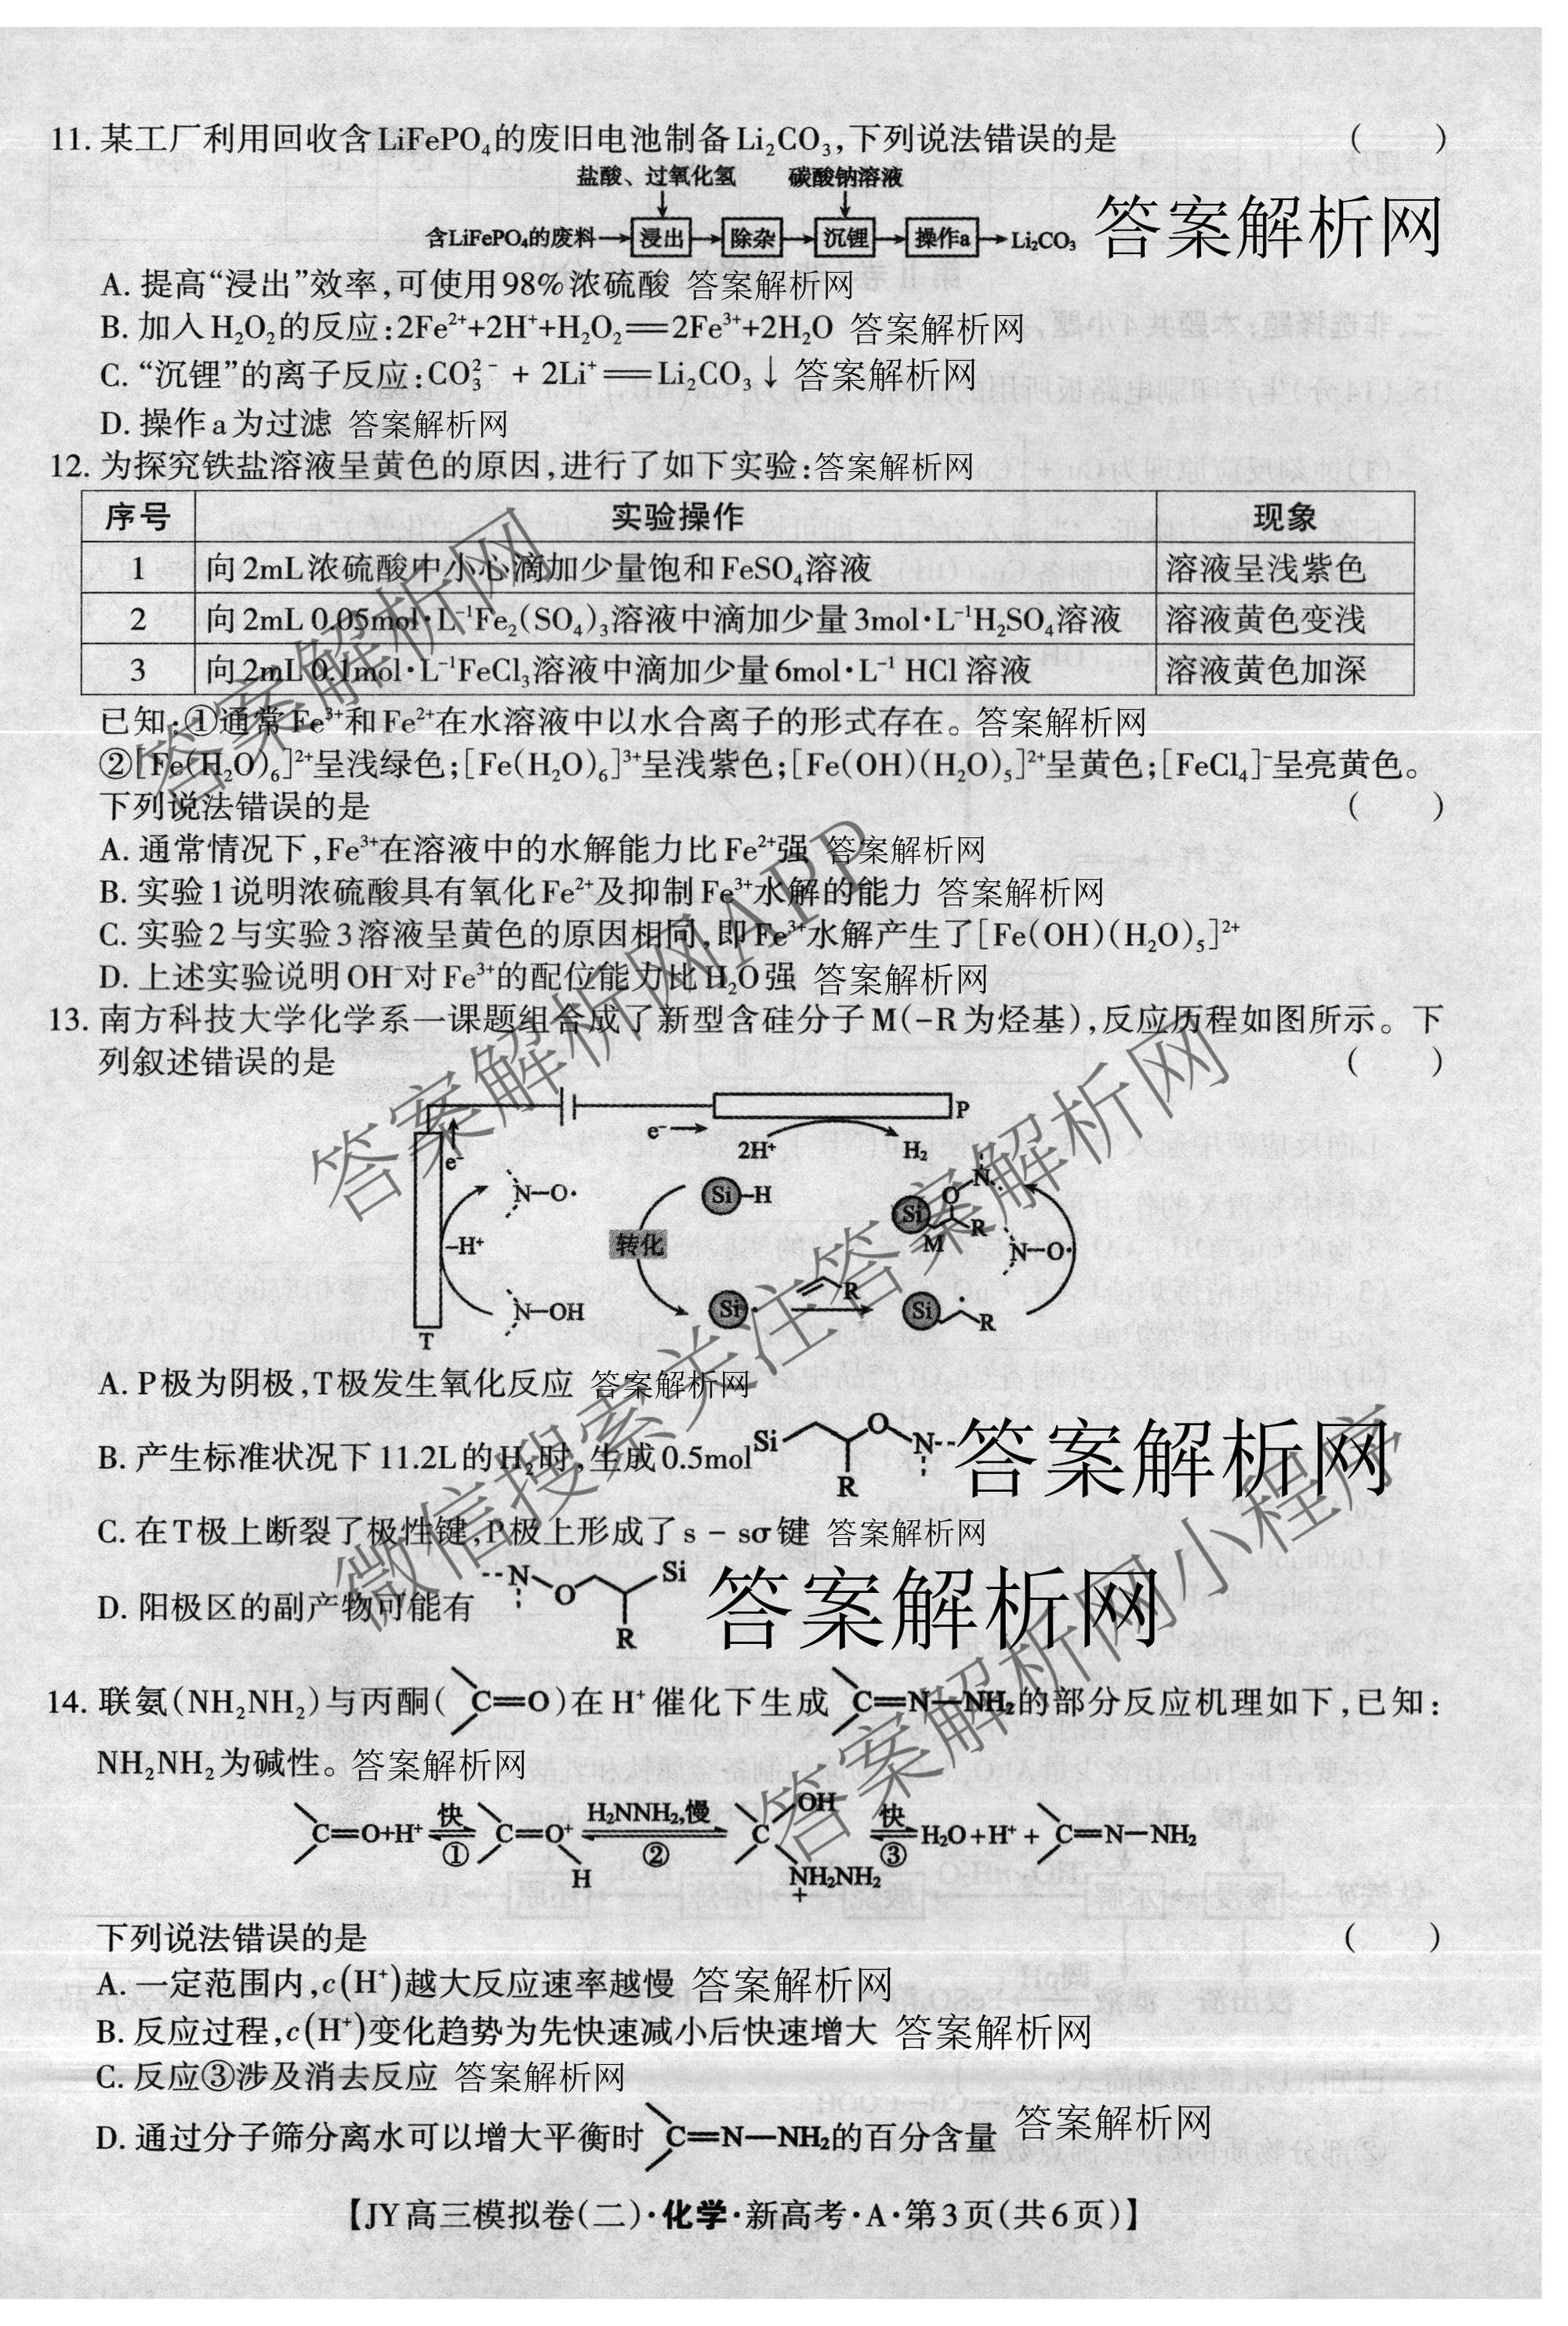 11. 某工厂利用回收含LiFePO₄的废旧电池制备Li₂CO₃,下列说法错误的是 ( )
盐酸、过氧化氢 碳酸钠溶液
含LiFePO₄的废料→浸出→除杂→沉锂→操作a→Li₂CO₃ 答案解析网
A. 提高“浸出”效率,可使用98%浓硫酸 答案解析网
B. 加入H₂O₂的反应:2Fe²⁺+2H⁺+H₂O₂══2Fe³⁺+2H₂O 答案解析网
C. “沉锂”的离子反应:CO₃²⁻ + 2Li⁺══Li₂CO₃↓ 答案解析网
D. 操作a为过滤 答案解析网
12. 为探究铁盐溶液呈黄色的原因,进行了如下实验:答案解析网
序号 实验操作 现象
1 向2mL浓硫酸中小心滴加少量饱和FeSO₄溶液 溶液呈浅紫色
2 向2mL 0.05mol·L⁻¹Fe₂(SO₄)₃溶液中滴加少量3mol·L⁻¹H₂SO₄溶液 溶液黄色变浅
3 向2mL 0.1mol·L⁻¹FeCl₃溶液中滴加少量6mol·L⁻¹ HCl 溶液 溶液黄色加深
已知:①通常Fe³⁺和Fe²⁺在水溶液中以水合离子的形式存在。答案解析网
②[Fe(H₂O)₆]²⁺呈浅绿色;[Fe(H₂O)₆]³⁺呈浅紫色;[Fe(OH)(H₂O)₅]²⁺呈黄色;[FeCl₄]⁻呈亮黄色。
下列说法错误的是 ( )
A. 通常情况下,Fe³⁺在溶液中的水解能力比Fe²⁺强 答案解析网
B. 实验1说明浓硫酸具有氧化Fe²⁺及抑制Fe³⁺水解的能力 答案解析网
C. 实验2与实验3溶液呈黄色的原因相同,即Fe³⁺水解产生了[Fe(OH)(H₂O)₅]²⁺
D. 上述实验说明OH⁻对Fe³⁺的配位能力比H₂O强 答案解析网
13. 南方科技大学化学系一课题组合成了新型含硅分子M(-R为烃基),反应历程如图所示。下
列叙述错误的是 ( )
P
e⁻→
2H⁺ H₂
e⁻
N—O·
Si—H
Si O N R
M
—H⁺
转化
N—O·
N—OH
Si· R
Si R
T
A. P极为阴极,T极发生氧化反应 答案解析网
B. 产生标准状况下11.2L的H₂时,生成0.5mol Si O N R 答案解析网
C. 在T极上断裂了极性键,P极上形成了s-sσ键 答案解析网
D. 阳极区的副产物可能有 N O Si R 答案解析网
14. 联氨(NH₂NH₂)与丙酮( C═O)在H⁺催化下生成 C═N—NH₂的部分反应机理如下,已知:
NH₂NH₂为碱性。答案解析网
C═O+H⁺ 快 ① C═O⁺ H H₂NNH₂,慢 ② C OH NH₂NH₂ + 快 ③ H₂O+H⁺+ C═N—NH₂
下列说法错误的是 ( )
A. 一定范围内,c(H⁺)越大反应速率越慢 答案解析网
B. 反应过程,c(H⁺)变化趋势为先快速减小后快速增大 答案解析网
C. 反应③涉及消去反应 答案解析网
D. 通过分子筛分离水可以增大平衡时 C═N—NH₂的百分含量 答案解析网
【JY高三模拟卷(二)·化学·新高考·A·第3页(共6页)】
答案解析网
答案解析网APP
微信搜索关注答案解析网
答案解析网小程序